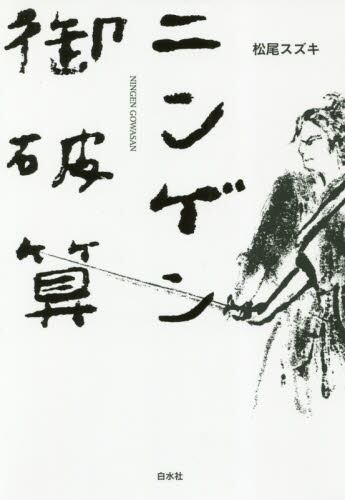 松尾スズキ
ニンゲン
御破算
NINGEN GOWASAN
白水社